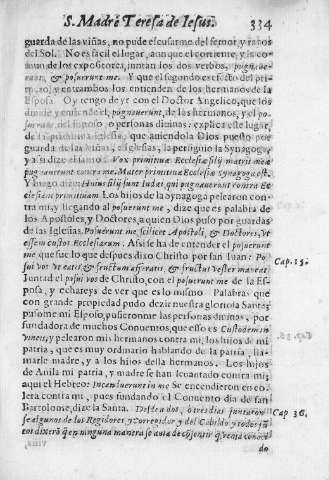 S. Madre Teresa de Iesus. 334
guarda de las viñas, no pude escusarme del feruor, y rayos
del Sol. No es facil el lugar, aunque el corriente, y
de los expositores, juntan los dos verbos,
& posuerunt me. Y que el segondo es efecto del pri-
y entrambos los entienden de los hermanos de la
Esposa. Oy tengo de yr con el Doctor Angelico, que los
diuide y entiende el, pugnauerunt, de los hermanos, y el po-
suerunt del Esposo, o personas diuinas: explica este lugar,
de la primitiua iglesia, que auiendola Dios puesto por
guarda de las viñas, e iglesias, la persiguio la Synagoga,
y assi dize el santo. Vox primitiuæ Ecclesiæ filij matris meæ
pugnauerunt contra me. Mater primitiuæ Ecclesiæ Synagoga est.
Y luego dize: Huius filij sunt Iudæi, qui pugnauerunt contra Ec-
clesiam primitiuam Los hijos de la synagoga pelearon con-
tra mi, y llegando al posuerunt me, dize que es palabra de
los Apostoles, y Doctores, a quien Dios puso por guardas
de las Iglesias. Posuerunt me, scilicet Apostoli, & Doctores, vt
essem custos Ecclesiarum. Assi se ha de entender el posuerunt
me que fue lo que despues dixo Christo por san Iuan: Po
sui vos vt eatis & fructum afferatis, & fructus vester maneat Cap. 15.
Juntad el posui vos de Christo, con el posuerunt me de la Es-
posa, y echareys de ver que es lo mismo Palabras que
con grande propiedad pudo dezir nuestra gloriosa Santa,
pusome mi Esposo, pusieronme las personas diuinas, por
fundadora de muchos Conuentos, que esso es Custodem in
vineis, y pelearon mis hermanos contra mi, los hijos de mi
patria, que es muy ordinario hablando de la patria, lla-
marle madre, y a los hijos della hermanos. Los hijos
de Auila mi patria, y madre se han leuantado contra mi,
aqui el Hebreo: Incanluerunt in me Se encendieron en co-
lera contra mi, pues fundando el Conuento dia de san
Bartolome, dize la Santa. Desde a dos, o tres dias juntaron Cap 36.
se algunos de los Regidores y corregidor y del Cabildo y todos jun-
tos dixerõ q̃ en ninguna manera se auia de cõsentir
do